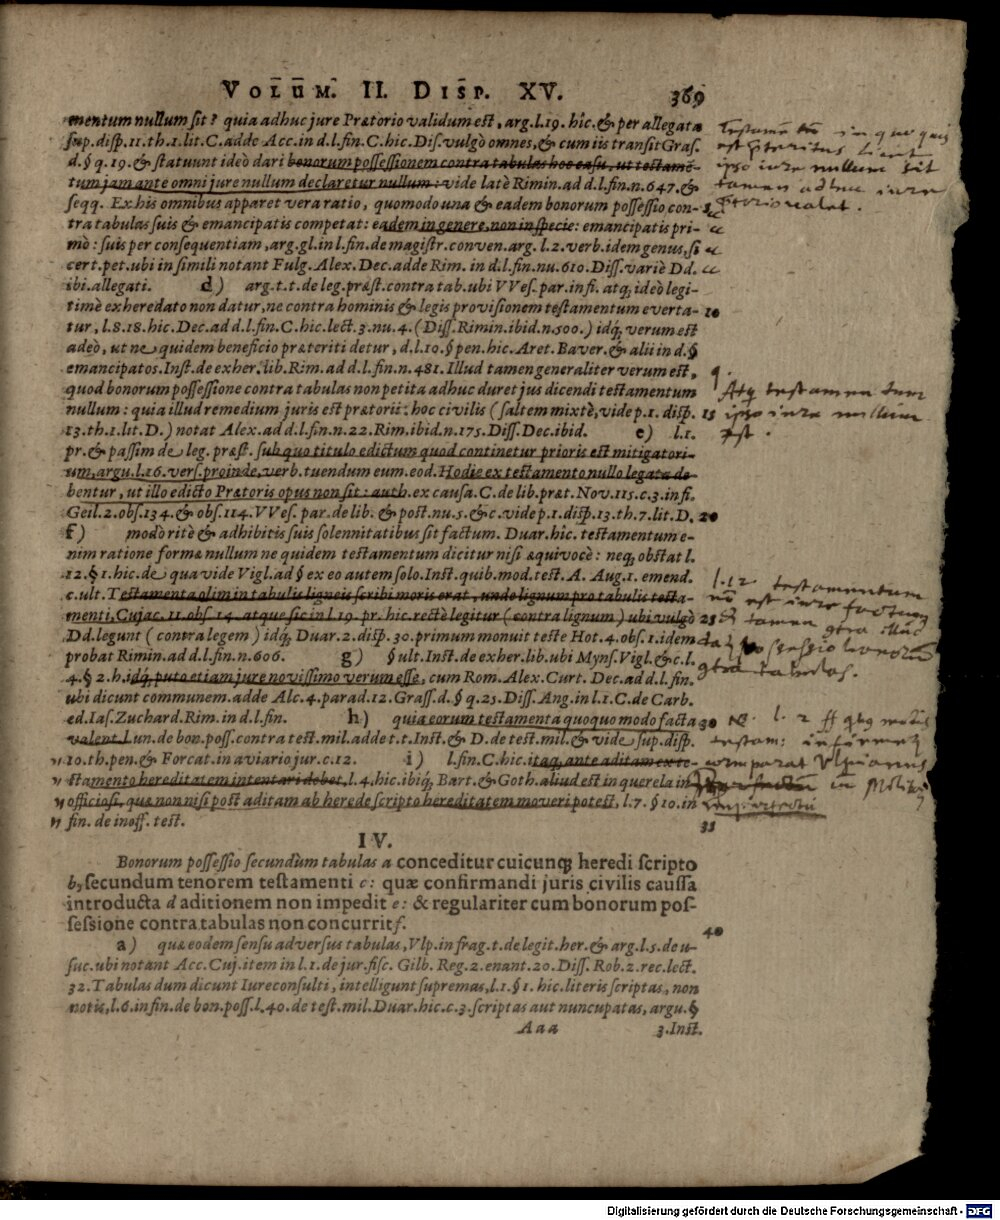 VOLUM. II. DISP. XV. 369
mentum nullum sit? quia adhuc jure Prætorio validum est, arg. l. 19. hîc. & per allegata
sup. disp. 11. th. 1. lit. C. adde Acc. in d. l. fin. C. hic. Dis. vulgò omnes, & cum iis transit Gras.
d. § q. 19. & statuunt ideò dari bonorum possessionem contra tabulas hoc casu, ut testamē-
tum jam ante omni jure nullum declaretur nullum: vide latè Rimin. ad d. l. fin. n. 647. &
seqq. Ex his omnibus apparet vera ratio, quomodo una & eadem bonorum possessio con- 5
tra tabulas suis & emancipatis competat: eadem in genere, non in specie: emancipatis pri-
mò: suis per consequentiam, arg. gl. in l. fin. de magistr. conven. arg. l. 2. verb. idem genus, si
cert. pet. ubi in simili notant Fulg. Alex. Dec. adde Rim. in d. l. fin. nu. 610. Diss. variè Dd.
ibi. allegati. d) arg. t. t. de leg. præst. contra tab. ubi VVes. par. in fi. atq; ideò legi-
timè exheredato non datur, ne contra hominis & legis provisionem testamentum everta- 10
tur, l. 8. 18. hic. Dec. ad d. l. fin. C. hic. lect. 3. nu. 4. (Diss. Rimin. ibid. n. 500.) idq; verum est
adeò, ut ne quidem beneficio præteriti detur, d. l. 10. § pen. hic. Aret. Baver. & alii in d. §
emancipatos. Inst. de exher. lib. Rim. ad d. l. fin. n. 481. Illud tamen generaliter verum est,
quod bonorum possessione contra tabulas non petita adhuc duret jus dicendi testamentum
nullum: quia illud remedium juris est prætorii: hoc civilis (saltem mixtè, vide p. 1. disp. 15
13. th. 1. lit. D.) notat Alex. ad d. l. fin. n. 22. Rim. ibid. n. 175. Diss. Dec. ibid. e) l. 1.
pr. & passim de leg. præst. sub quo titulo edictum quod continetur prioris est mitigatori-
um, argu. l. 16. vers. proinde, verb. tuendum eum. eod. Hodie ex testamento nullo legata de-
bentur, ut illo edicto Prætoris opus non sit: auth. ex causa. C. de lib. præt. Nov. 115. c. 3. in fi.
Geil. 2. obs. 134. & obs. 114. VVes. par. de lib. & post. nu. 5. & c. vide p. 1. disp. 13. th. 7. lit. D. 20
f) modò ritè & adhibitis suis solennitatibus sit factum. Duar. hic. testamentum e-
nim ratione formæ nullum ne quidem testamentum dicitur nisi æquivocè: neq; obstat l.
12. § 1. hic. de qua vide Vigl. ad § ex eo autem solo. Inst. quib. mod. test. A. Aug. 1. emend.
c. ult. Testamenta olim in tabulis ligneis scribi moris erat, unde lignum pro tabulis testa-
menti, Cujac. 11. obs. 14. atque sic in l. 19. pr. hic. rectè legitur (contra lignum) ubi vulgò 25
Dd. legunt (contra legem) idq; Duar. 2. disp. 30. primum monuit teste Hot. 4. obs. 1. idem
probat Rimin. ad d. l. fin. n. 606. g) § ult. Inst. de exher. lib. ubi Myns. Vigl. & c. l.
4. § 2. h. idq; puto etiam jure novissimo verum esse, cum Rom. Alex. Curt. Dec. ad d. l. fin.
ubi dicunt communem. adde Alc. 4. parad. 12. Grass. d. § q. 25. Diss. Ang. in l. 1. C. de Carb.
ed. Ias. Zuchard. Rim. in d. l. fin. h) quia eorum testamenta quoquo modo facta 30
valent. l. un. de bon. poss. contra test. mil. adde t. t. Inst. & D. de test. mil. & vide sup. disp.
10. th. pen. & Forcat. in aviario jur. c. 12. i) l. fin. C. hic. itaq; ante aditam ex te-
stamento hereditatem intentari debet, l. 4. hic. ibiq; Bart. & Goth. aliud est in querela in-
officiosi, quæ non nisi post aditam ab herede scripto hereditatem moveri potest, l. 7. § 10. in
fin. de inoff. test. 35
IV.
Bonorum possessio secundùm tabulas a conceditur cuicunq; heredi scripto
b, secundum tenorem testamenti c: quæ confirmandi juris civilis caussa
introducta d aditionem non impedit e: & regulariter cum bonorum pos-
sessione contra tabulas non concurrit f.
a) quæ eodem sensu adversus tabulas, Vlp. in frag. t. de legit. her. & arg. l. 5. de u- 40
suc. ubi notant Acc. Cuj. item in l. 1. de jur. fisc. Gilb. Reg. 2. enant. 20. Diss. Rob. 2. rec. lect.
32. Tabulas dum dicunt Iureconsulti, intelligunt supremas, l. 1. § 1. hic. literis scriptas, non
notis, l. 6. in fin. de bon. poss. l. 40. de test. mil. Duar. hic. c. 3. scriptas aut nuncupatas, argu. §
Aaa 3. Inst.
Testamentū in quo quis
est præteritus licet
ipso iure nullum sit
tamen adhuc iure
prætorio valet.
Atq; testamentum
ipso iure nullum
est.
l. 12 testamentum
nō est iure factum
tamen contra illud
datur possessio bonorum
contra tabulas.
l. 2 ff
testam:
comparat Ulpianus
Digitalisierung gefördert durch die Deutsche Forschungsgemeinschaft - DFG